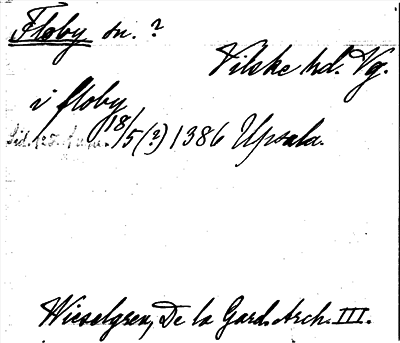 Floby sn. ?
Vilske hd. Vg.
i floby
18/5 (?) 1386 Upsala.
Wieselgren, De la Gard. Arch. III.